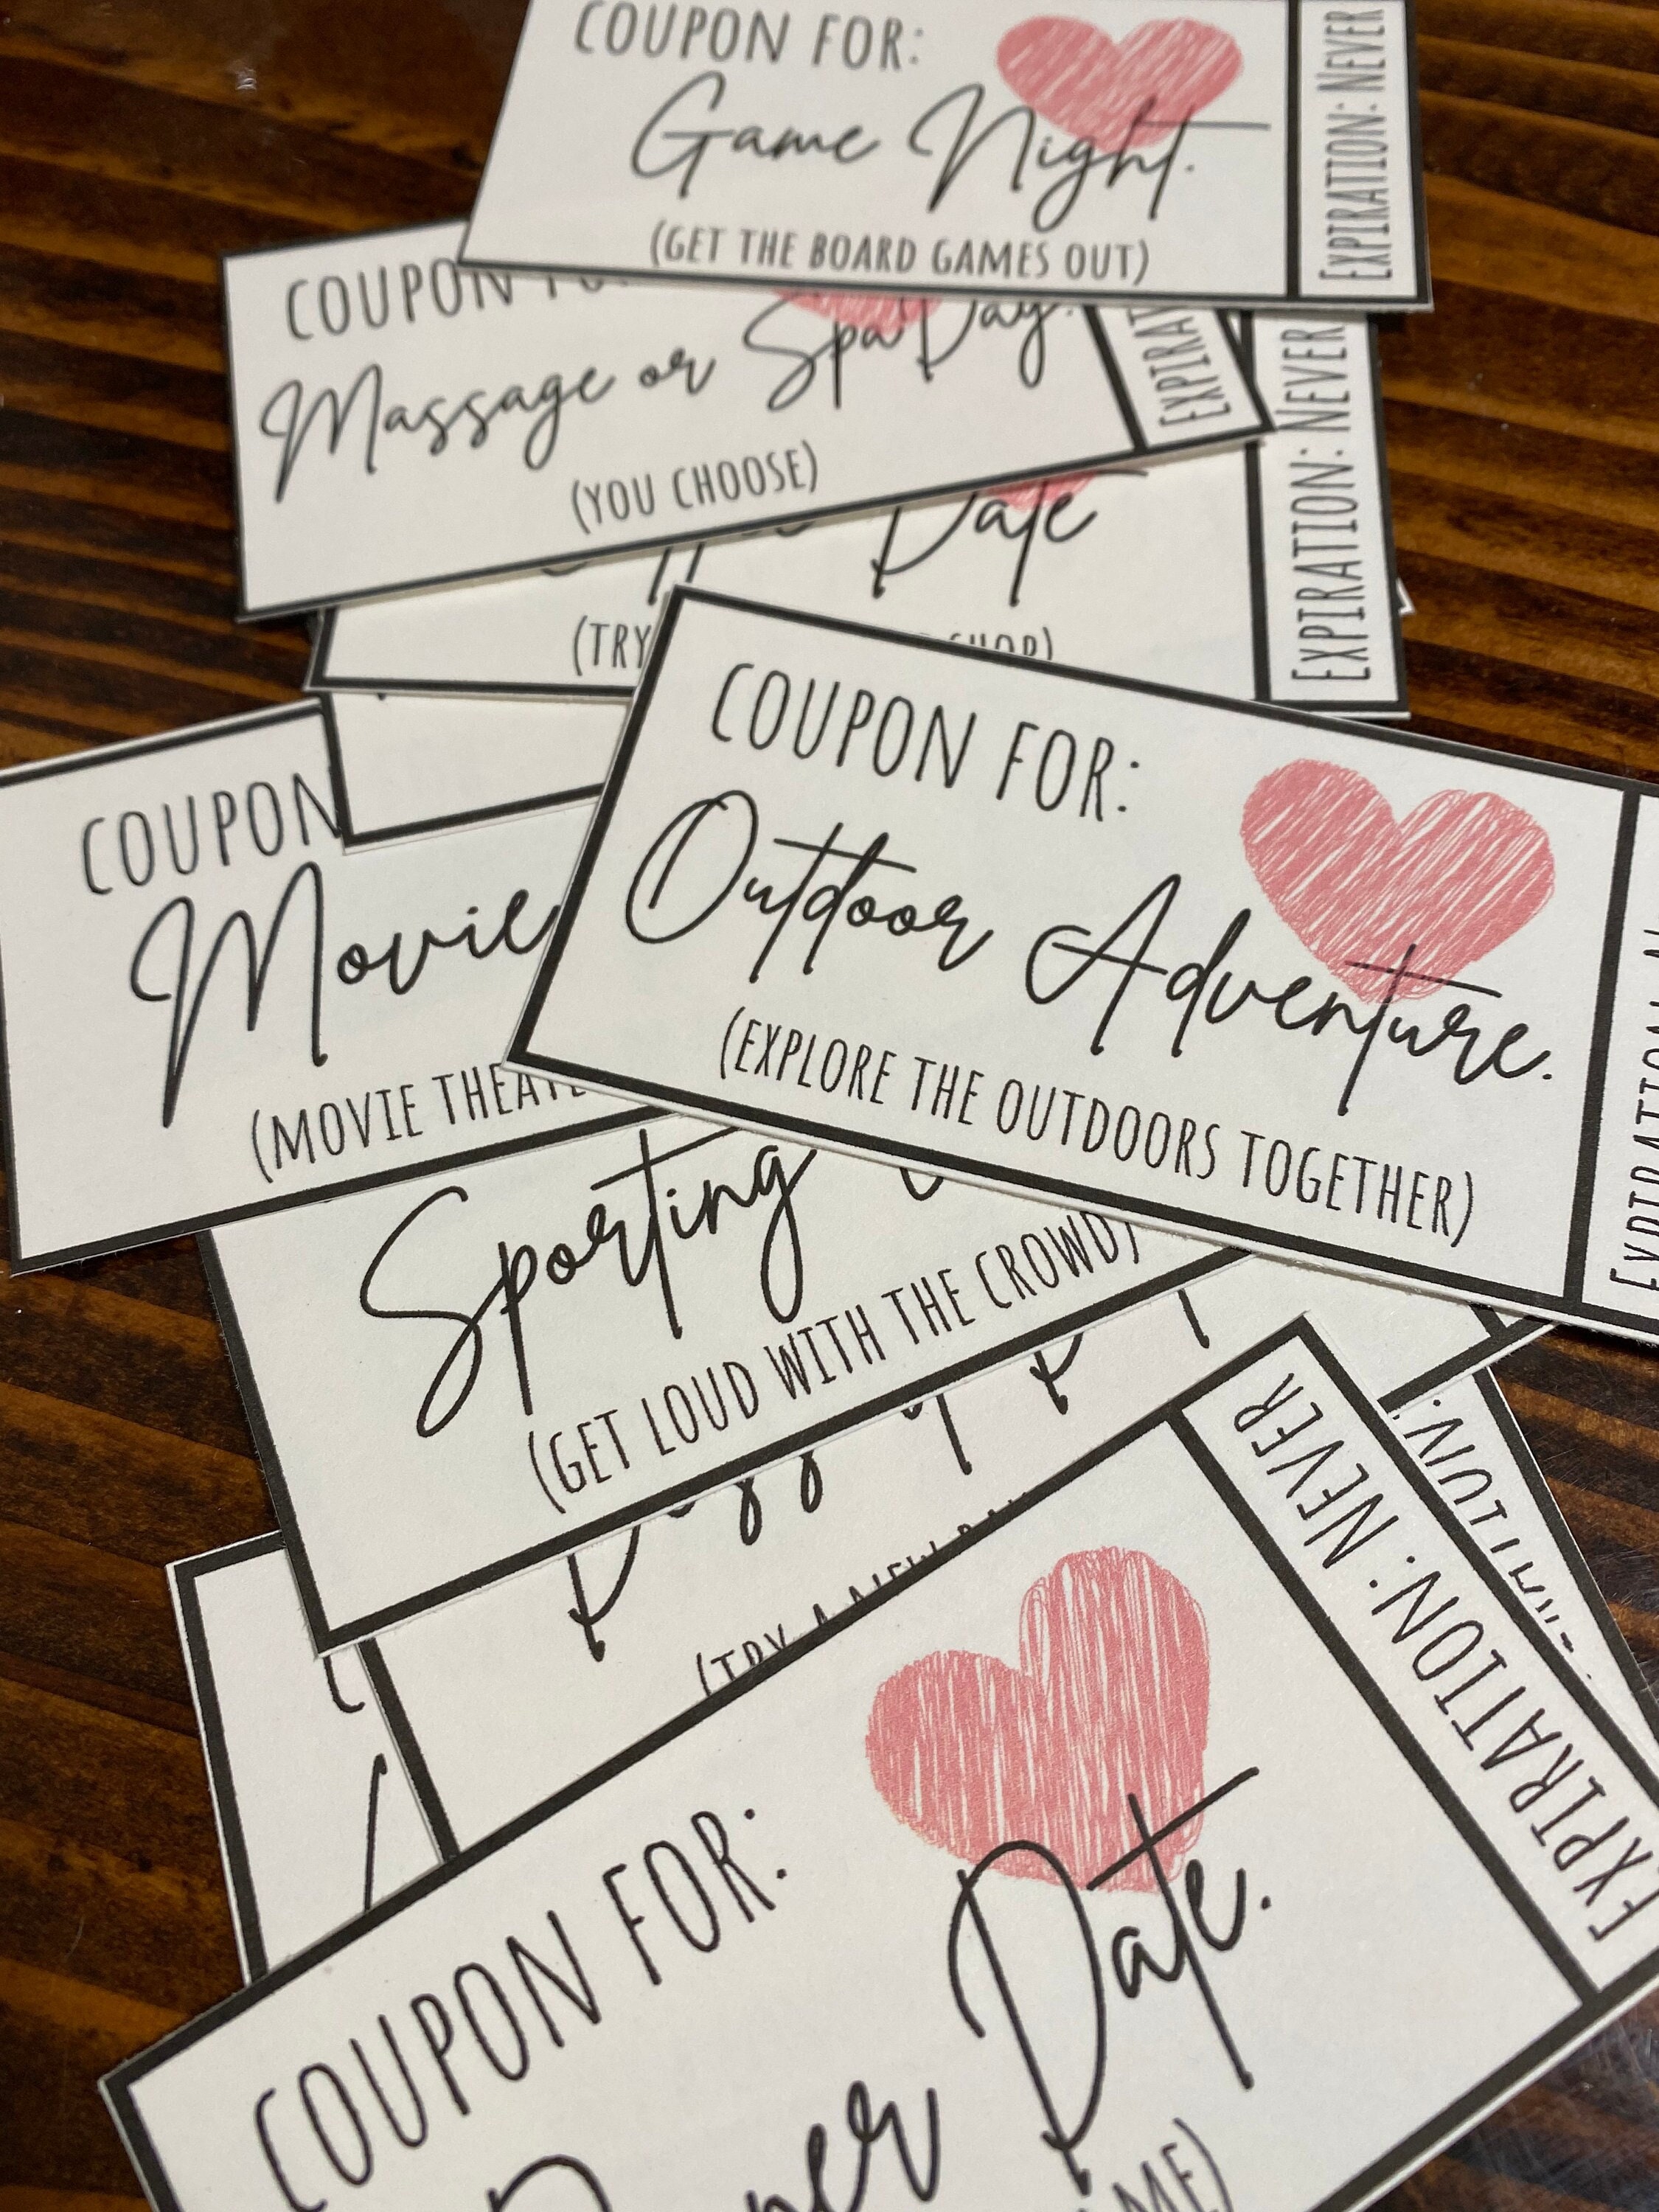 COUPON FOR:
Game Night.
(GET THE BOARD GAMES OUT)
EXPIRATION: NEVER
COUPON
Massage or Spa Day.
(YOU CHOOSE)
Date
(TRY
SHOP)
EXPIRATION: NEVER
COUPON
Movie
(MOVIE
COUPON FOR:
Outdoor Adventure.
(EXPLORE THE OUTDOORS TOGETHER)
Sporting
(GET LOUD WITH THE CROWD)
(TRY A NEW
COUPON FOR:
Date.
EXPIRATION: NEVER